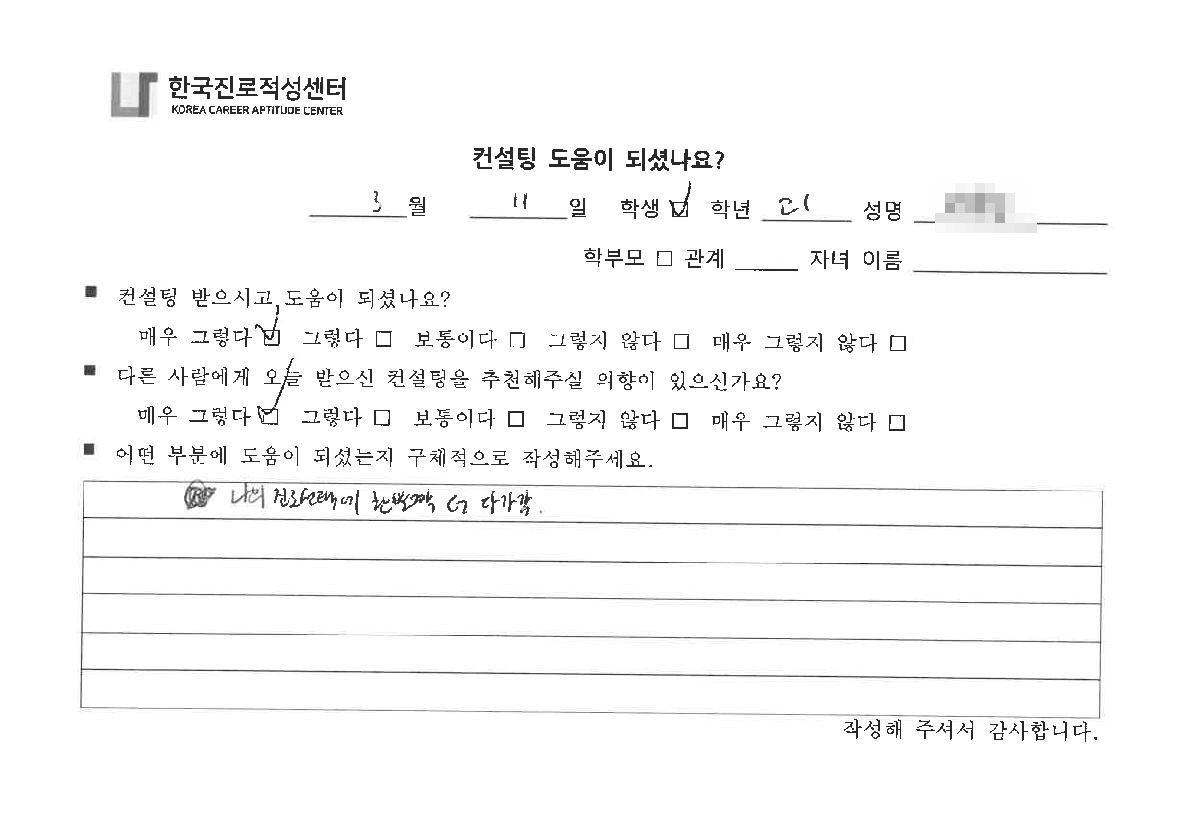 한국진로적성센터
KOREA CAREER APTITUDE CENTER
컨설팅 도움이 되셨나요?
3월 11일 학생 ☑ 학년 고1 성명
학부모 □ 관계 자녀 이름
■ 컨설팅 받으시고 도움이 되셨나요?
매우 그렇다 ☑ 그렇다 □ 보통이다 □ 그렇지 않다 □ 매우 그렇지 않다 □
■ 다른 사람에게 오늘 받으신 컨설팅을 추천해주실 의향이 있으신가요?
매우 그렇다 ☑ 그렇다 □ 보통이다 □ 그렇지 않다 □ 매우 그렇지 않다 □
■ 어떤 부분에 도움이 되셨는지 구체적으로 작성해주세요.
나의 진로선택에 한발짝 더 다가감.
작성해 주셔서 감사합니다.